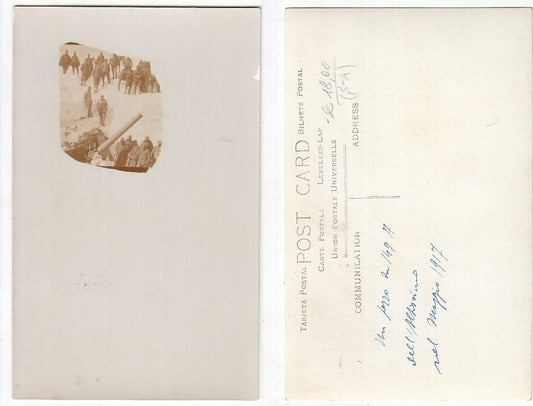 TARJETA POSTAL POST CARD BILHETE POSTAL
CARTE POSTALE LEVELEZO-LAP
UNION POSTALE UNIVERSELLE
COMMUNICATION
ADDRESS
18,00
Un pezzo da 149
nel Maggio 1917